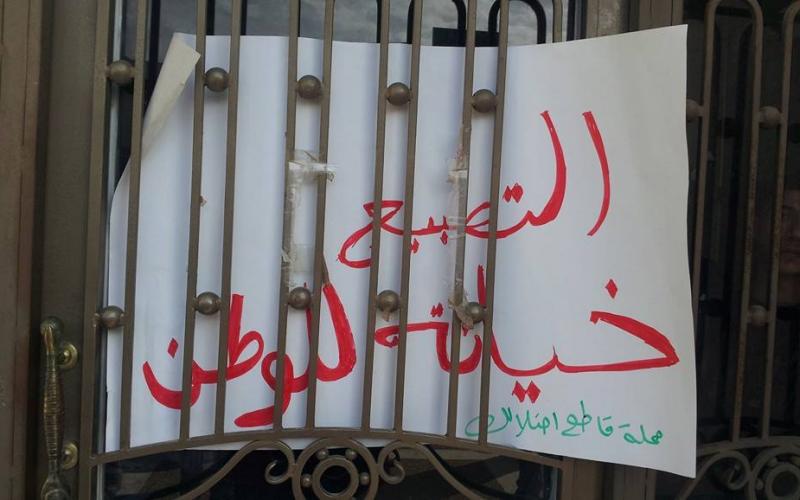 التطبيع
خيانة للوطن
حملة قاطع احتلالك